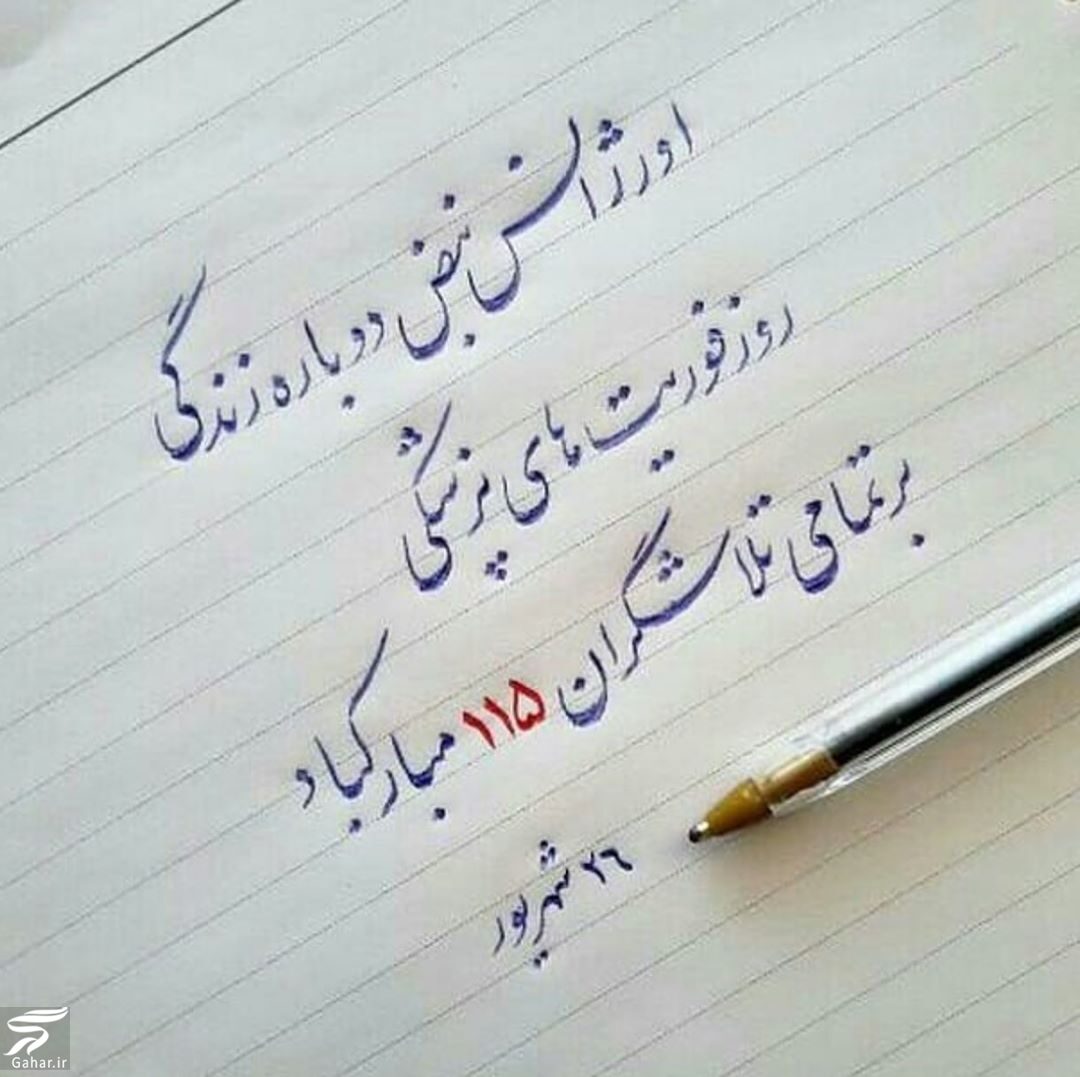 اورژانس نبض دوباره زندگی
روز فوریت های پزشکی
بر تمامی تلاشگران ۱۱۵ مبارکباد
۲۶ شهریور
Gahar.ir